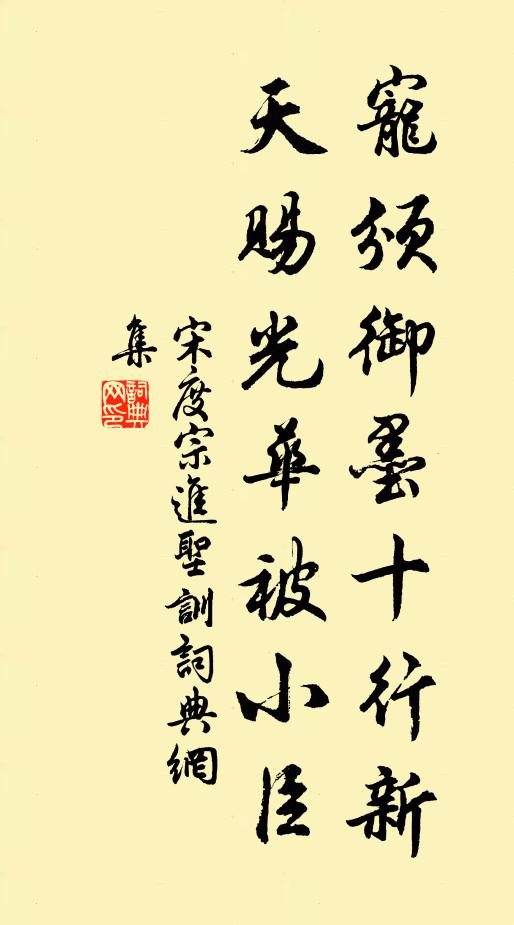 寵頒御墨十行新
天賜光華被小臣
宋度宗進聖訓詞典網
集
詞典網印